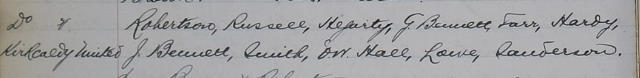 Do v Robertson, Russell, Hegarty, G Bennett, Farr, Hardy,
Kirkcaldy United J. Bennett, Smith, Hall, Lowe, Sanderson.